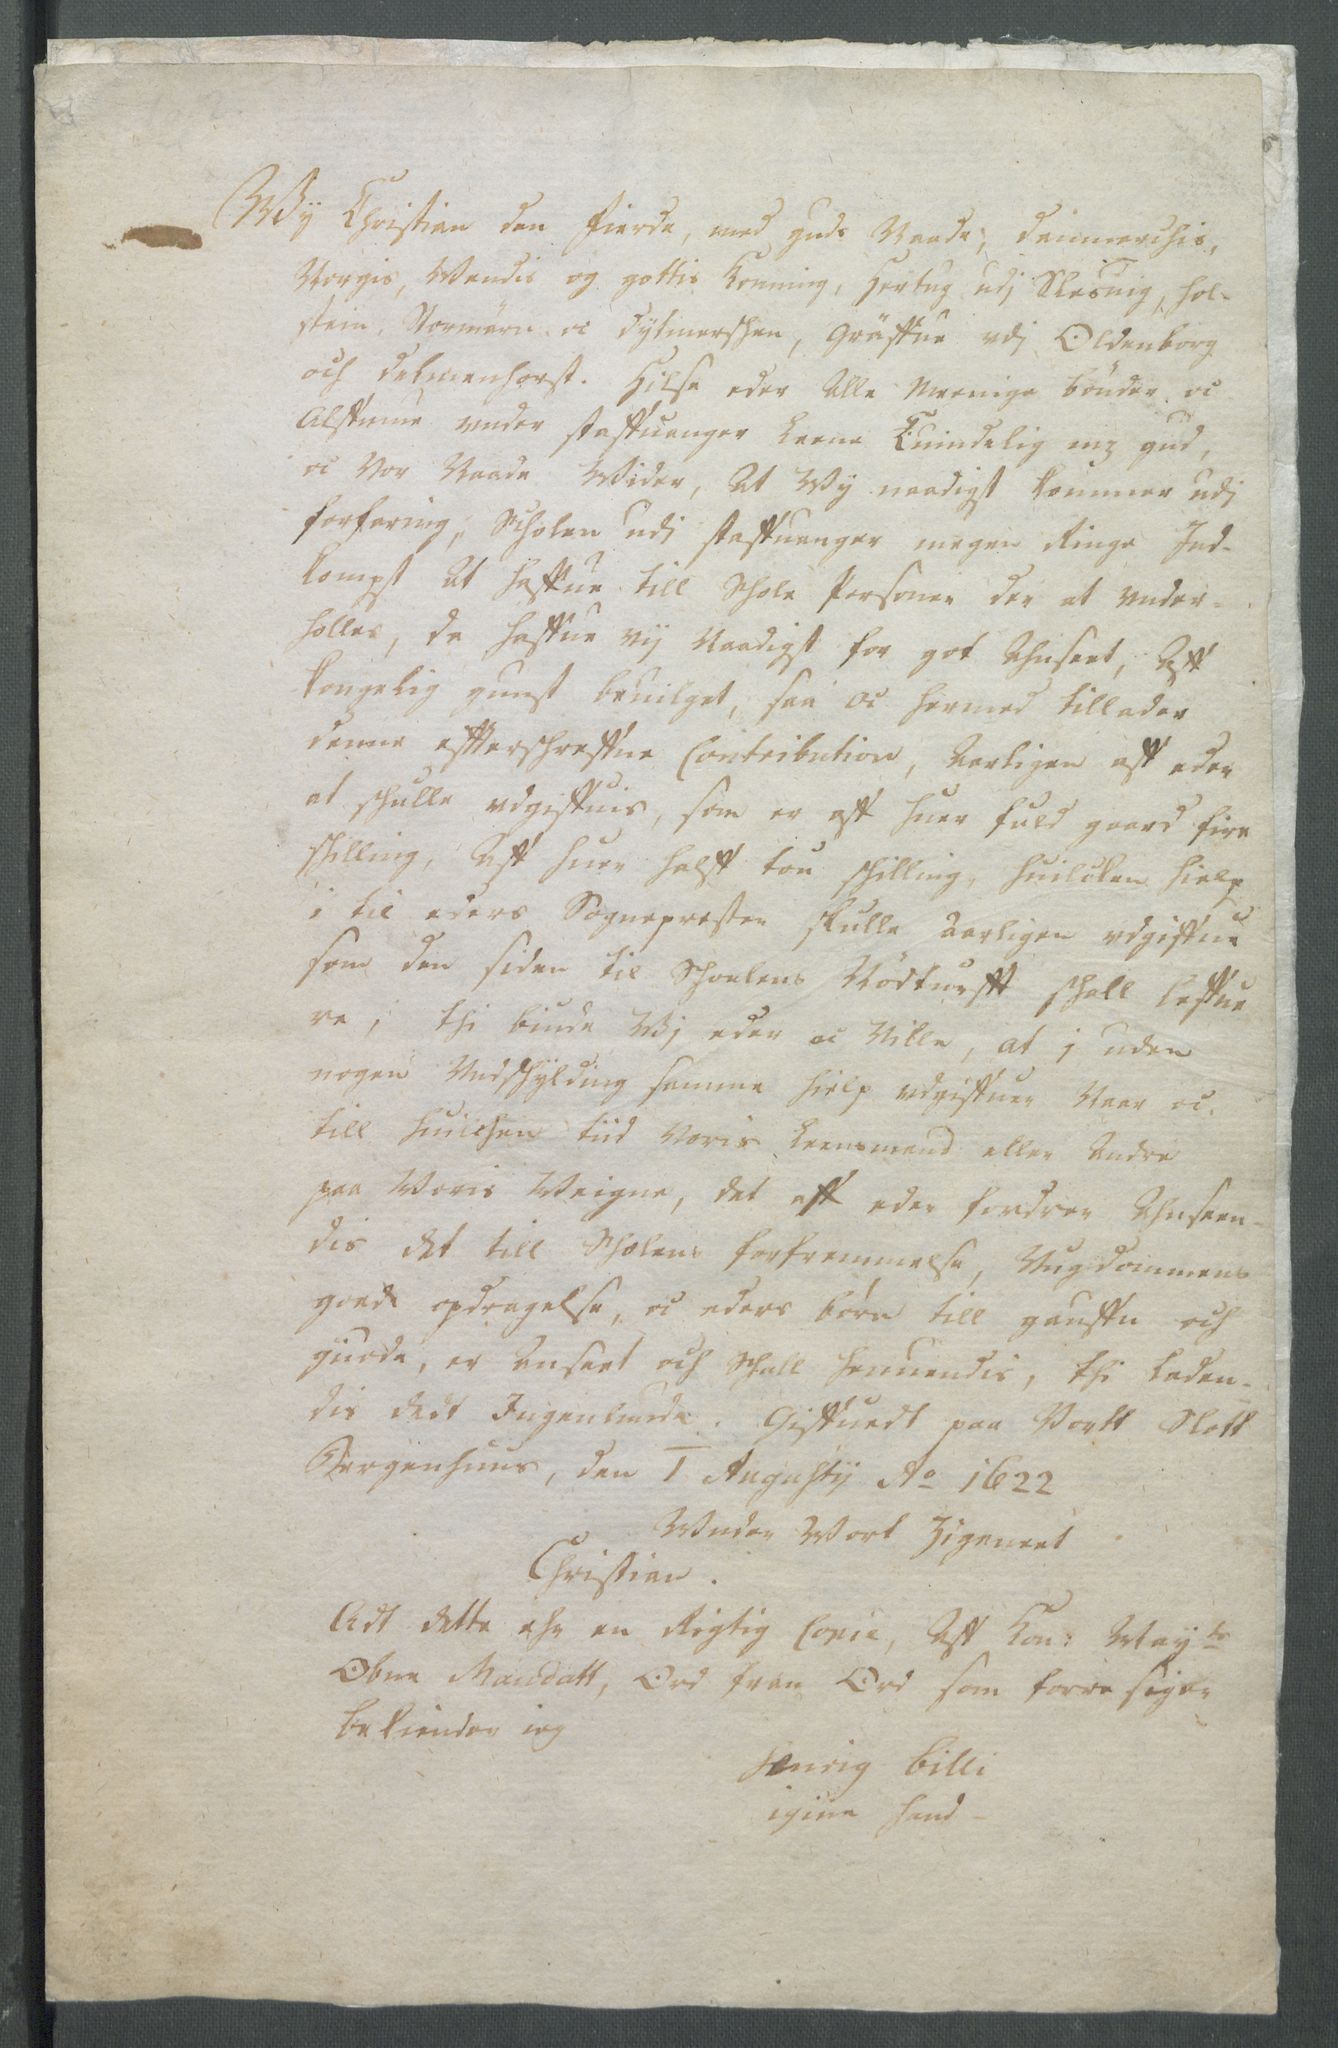 Wy Christian den fierde, med guds Naade, danmarchis,
Norgis, Wendis og gottis Konning, Hertug udj Slesuig, Hol-
stein, Stormarn oc dytmerschen, Gräffue vdj Oldenborg
och delmenhorst. Hilse eder Alle Menige bönder oc
Alffmue vnder Staffuanger Leene Kuindelig mz gud,
oc Vor Naade Wider, At Wy naadigst kommer udj
forfaring, Scholen udj Staffuanger megen Ringe Ind-
kompst at haffue till Schole Personer der at vnder-
holles, da haffue vij Naadigst for got Anseet, Aff
kongelig gunst beuilget, saa oc hermed tillader
denne effterschreffne Contribution, Aarligen aff eder
at schulle vdgiffuis, som er aff huer fuld gaard fire
schilling, Aff huer halff tou schilling, huilcken hielp
i til eders Sognepresten skulle aarligen vdgiffue
som den siden til Schoelens Nödturfft schall leffue
re, thi biude Wj eder oc Ville, at j uden
nogen Undschylding samme hielp vdgiffuer Naar oc
till huilchen tiid Voris Leensmand eller Andre
paa Voris Weigne, det aff eder fordrer Anseen-
dis det till Scholens forfremmelse, Ungdommens
goede opdragelse, oc eders börn till gauffn och
guode, er anseet och schall henuendis, thi lader-
dis dedt Ingenlunde. Giffuedt paa Vortt Slott
Bergenhuus, den 1 Augusty Ao 1622
Wnder Wort Zigeneet
Christian.
Adt dette ehr en Rigtig Copie, Aff Kon: May:ts
Obne Mandatt, Ord fran Ord som forre siger
bekiender ieg
Henrig Billi
igine hand